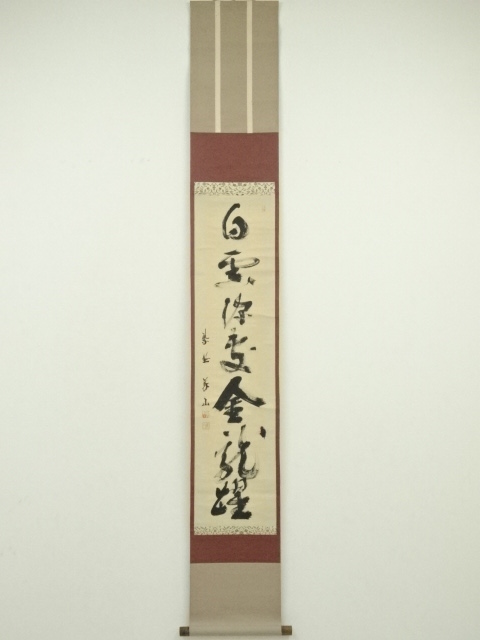 白雲深處金龍躍